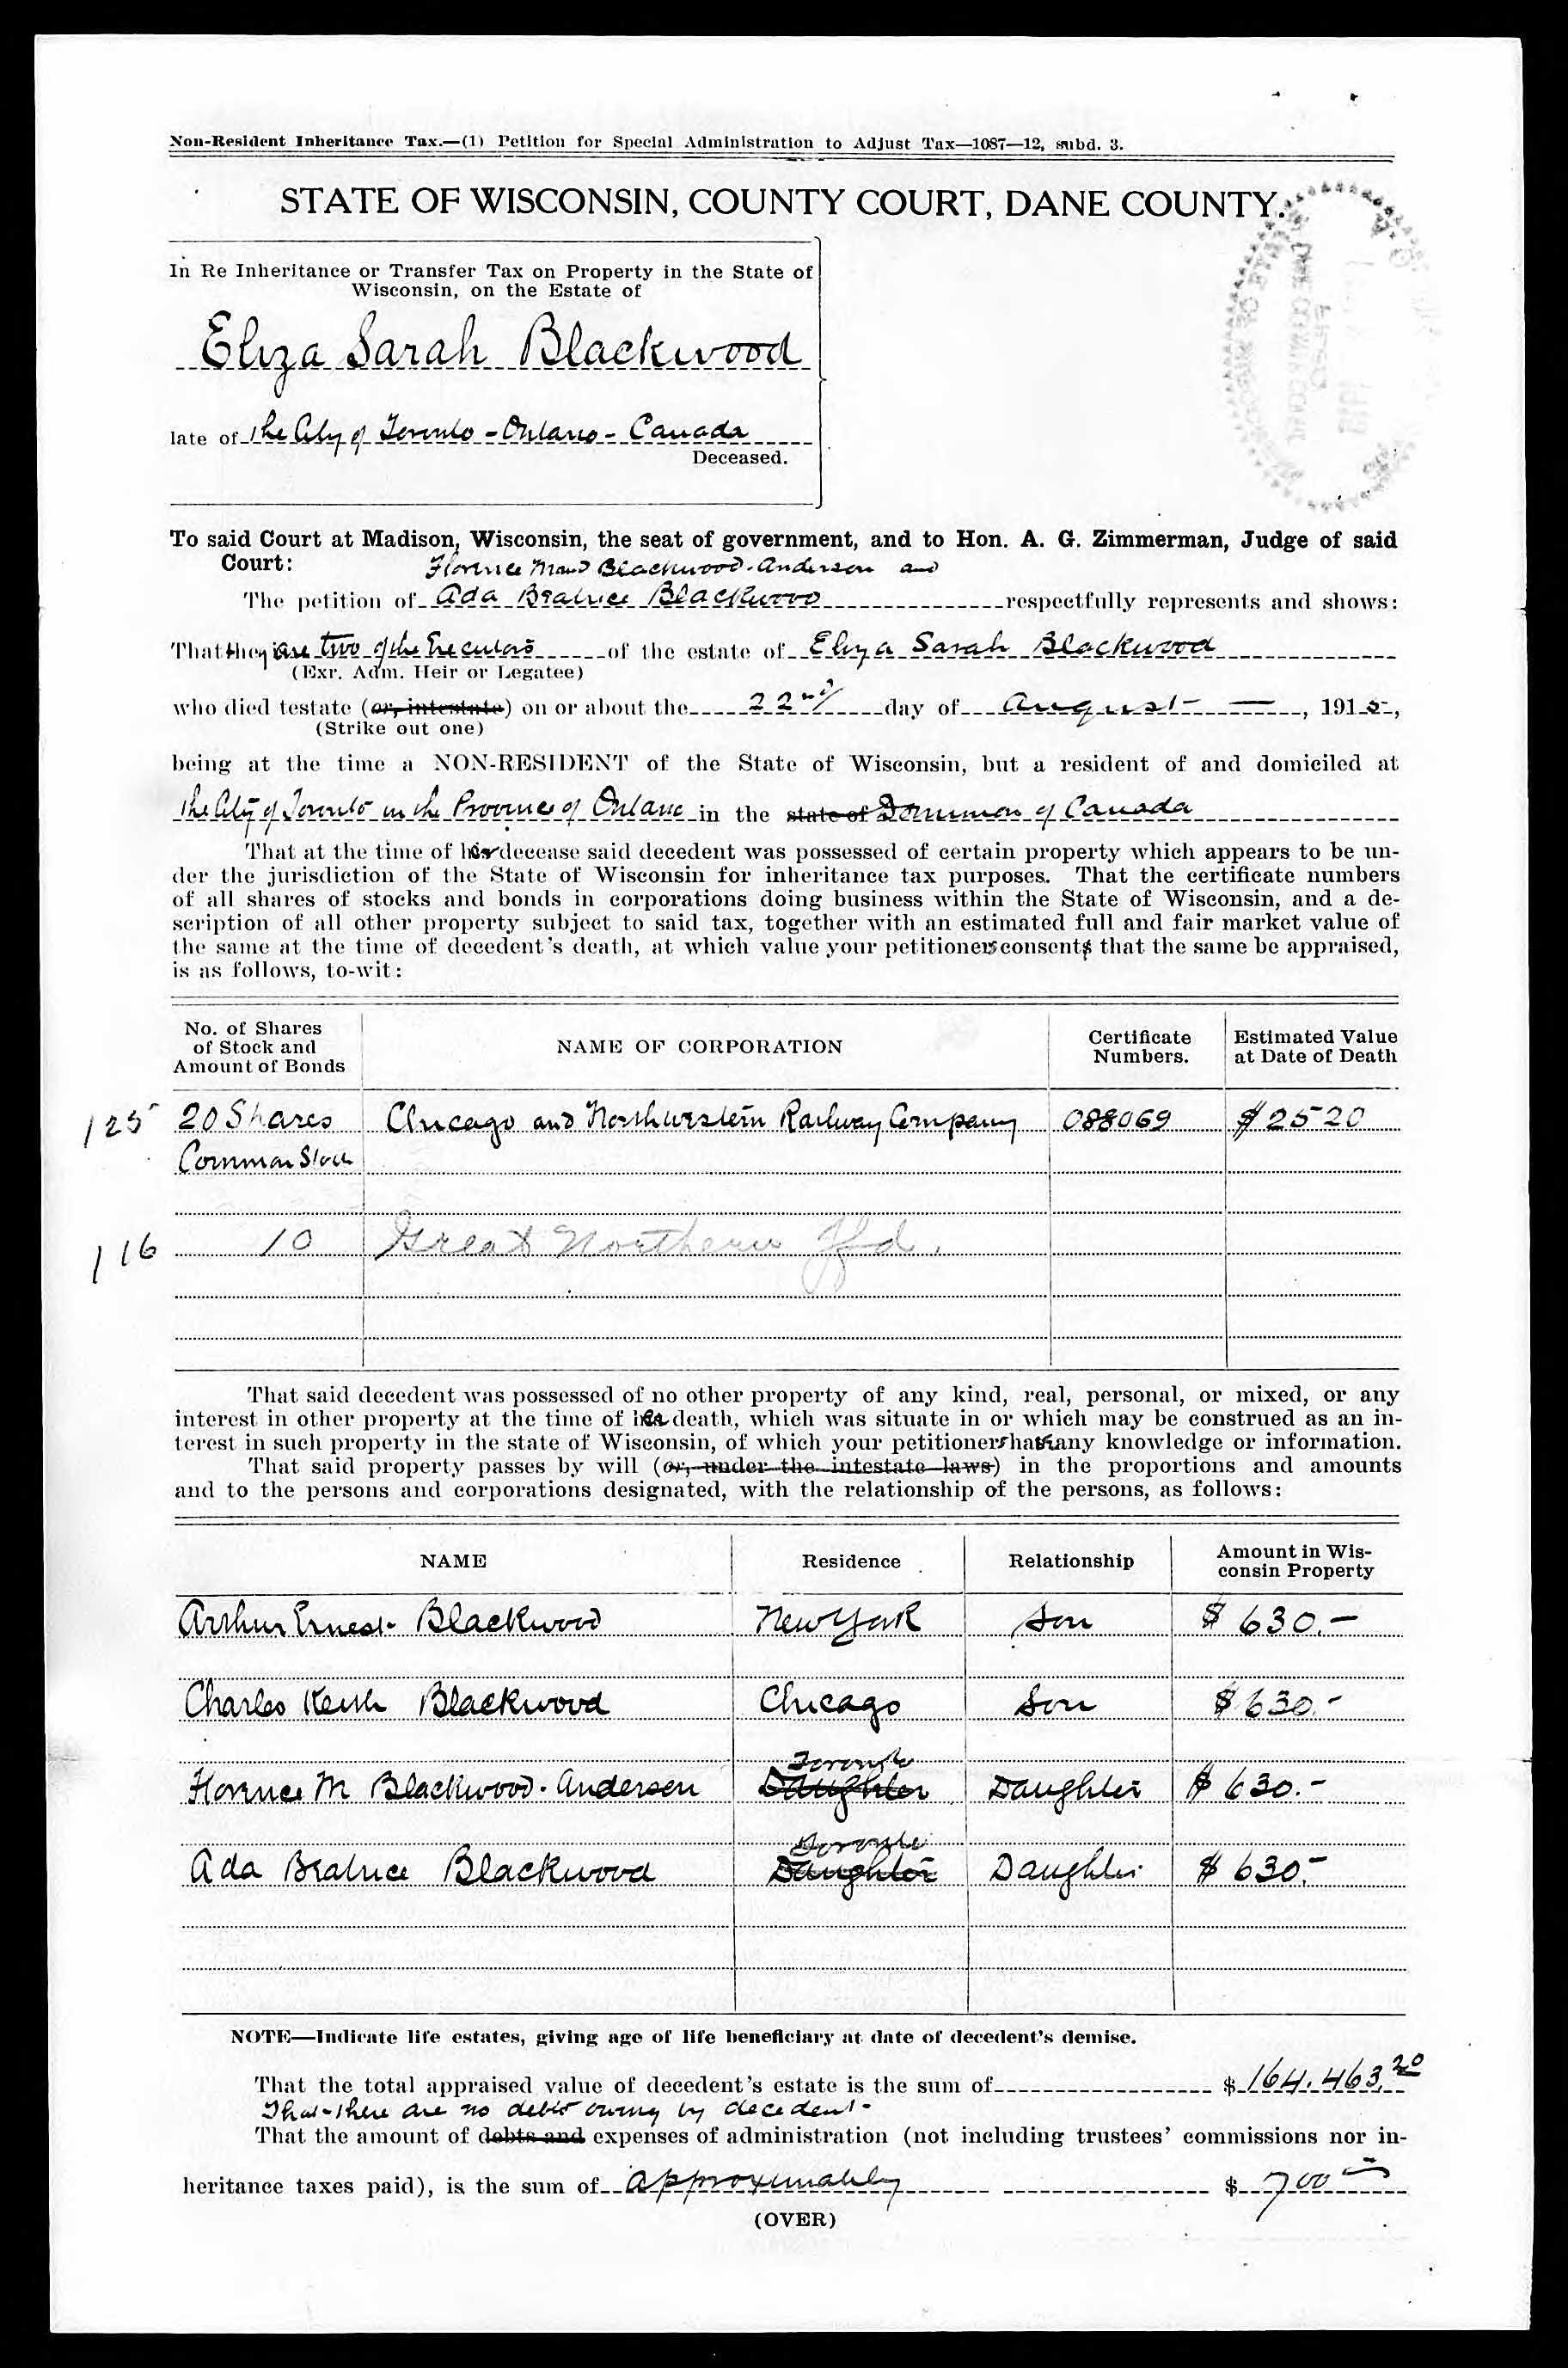 Non-Resident Inheritance Tax.—(1) Petition for Special Administration to Adjust Tax—1087—12, subd. 3.
STATE OF WISCONSIN, COUNTY COURT, DANE COUNTY.
In Re Inheritance or Transfer Tax on Property in the State of
Wisconsin, on the Estate of
Eliza Sarah Blackwood
late of the City of Toronto - Ontario - Canada
Deceased.
To said Court at Madison, Wisconsin, the seat of government, and to Hon. A. G. Zimmerman, Judge of said
Court:
Florence Maud Blackwood-Anderson and
The petition of Ada Beatrice Blackwood respectfully represents and shows:
That they are two of the Executors of the estate of Eliza Sarah Blackwood
(Exr. Adm. Heir or Legatee)
who died testate (or, intestate) on or about the 22nd day of August —, 1915,
(Strike out one)
being at the time a NON-RESIDENT of the State of Wisconsin, but a resident of and domiciled at
the City of Toronto in the Province of Ontario in the state of Dominion of Canada
That at the time of her decease said decedent was possessed of certain property which appears to be un-
der the jurisdiction of the State of Wisconsin for inheritance tax purposes. That the certificate numbers
of all shares of stocks and bonds in corporations doing business within the State of Wisconsin, and a de-
scription of all other property subject to said tax, together with an estimated full and fair market value of
the same at the time of decedent's death, at which value your petitioners consent that the same be appraised,
is as follows, to-wit:
No. of Shares of Stock and Amount of Bonds NAME OF CORPORATION Certificate Numbers. Estimated Value at Date of Death
125 20 Shares Chicago and Northwestern Railway Company 088069 $2520
Common Stock
116 10 Great Northern Pfd.
That said decedent was possessed of no other property of any kind, real, personal, or mixed, or any
interest in other property at the time of her death, which was situate in or which may be construed as an in-
terest in such property in the state of Wisconsin, of which your petitioners have any knowledge or information.
That said property passes by will (or, under the intestate laws) in the proportions and amounts
and to the persons and corporations designated, with the relationship of the persons, as follows:
NAME Residence Relationship Amount in Wis-consin Property
Arthur Ernest Blackwood New York Son $ 630.—
Charles Keith Blackwood Chicago Son $ 630.-
Toronto
Florence M Blackwood-Anderson Daughter Daughter $ 630.-
Toronto
Ada Beatrice Blackwood Daughter Daughter $ 630.-
NOTE—Indicate life estates, giving age of life beneficiary at date of decedent's demise.
That the total appraised value of decedent's estate is the sum of $ 164.463.20
That there are no debts owing by decedent-
That the amount of debts and expenses of administration (not including trustees' commissions nor in-
heritance taxes paid), is the sum of approximately $ 700
(OVER)